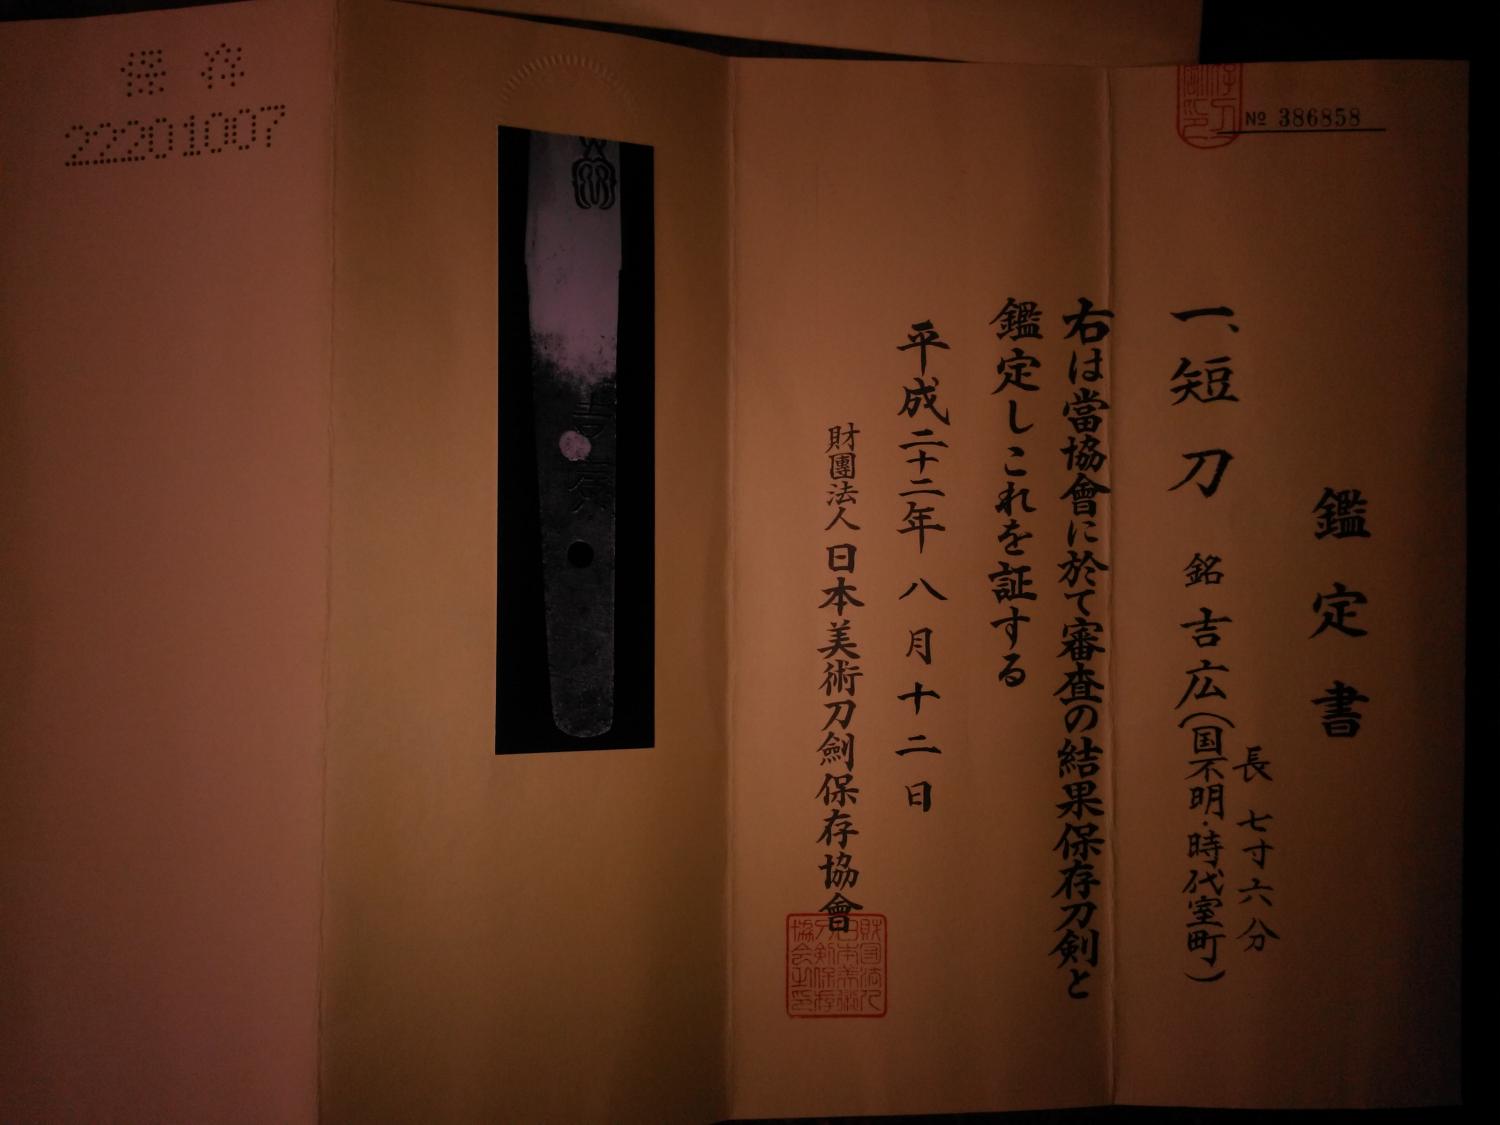 № 386858
鑑定書
一、短刀 銘 吉広(国不明・時代室町)
長 七寸六分
右は當協會に於て審査の結果保存刀剣と
鑑定しこれを証する
平成二十二年 八月十二日
財團法人 日本美術刀劍保存協會
吉廣
保存
22201007